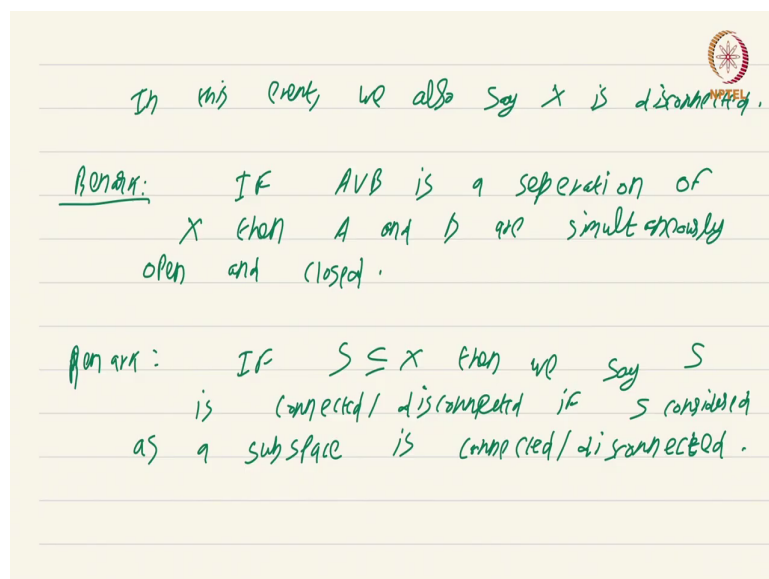 NPTEL
In this event, we also say X is disconnected.
Remark: IF A∪B is a seperation of
X then A and B are simultaneously
open and closed.
Remark: IF S ⊆ X then we say S
is connected/disconnected if S considered
as a subspace is connected/disconnected.